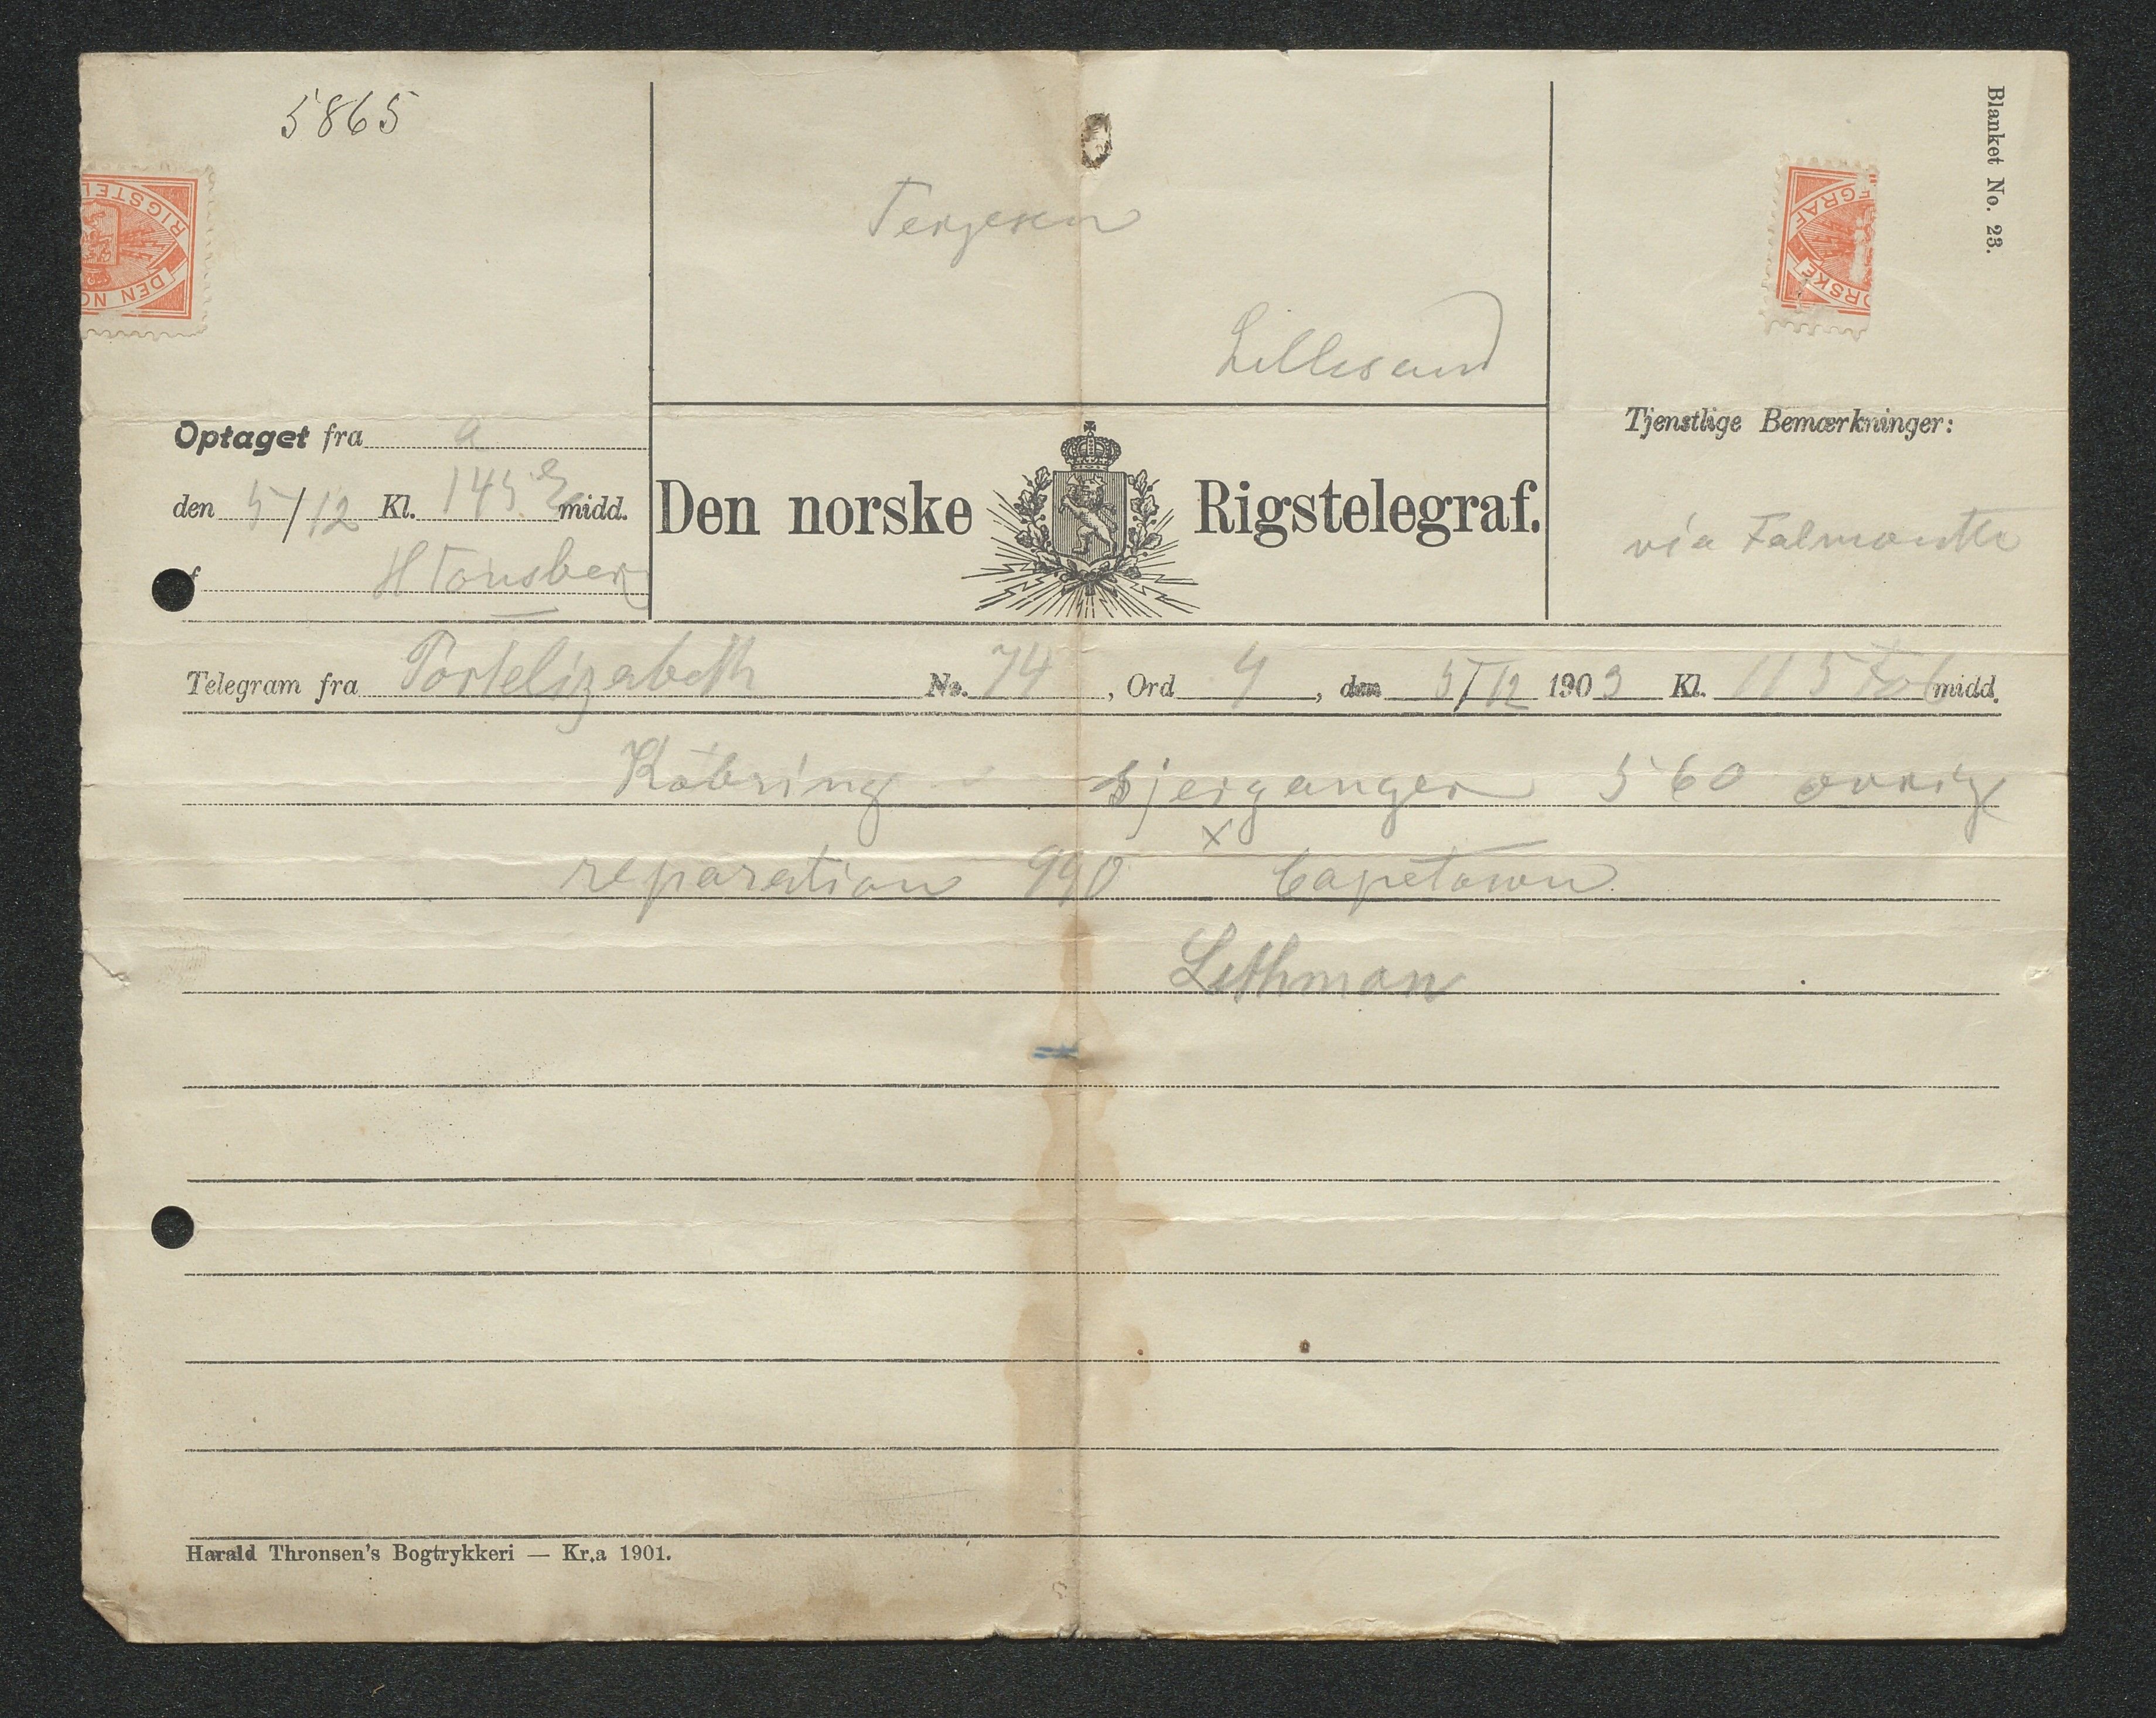 5865
Blanket No. 23.
RIGSTEL
DEN NO
EGRAF
ORSKE
Terjesen
Lillesand
Optaget fra a
den 5/12 Kl. 145 E midd.
H Tönsberg
Den norske Rigstelegraf.
Tjenstlige Bemærkninger:
via Falmouth
Telegram fra Portelizabeth No. 74, Ord 9, den 5/12 1903 Kl. 115 Fo midd.
Köbring bjerganger 560 øvrig
reparation 990 x Capetown
Lethman
Harald Thronsen's Bogtrykkeri — Kr.a 1901.